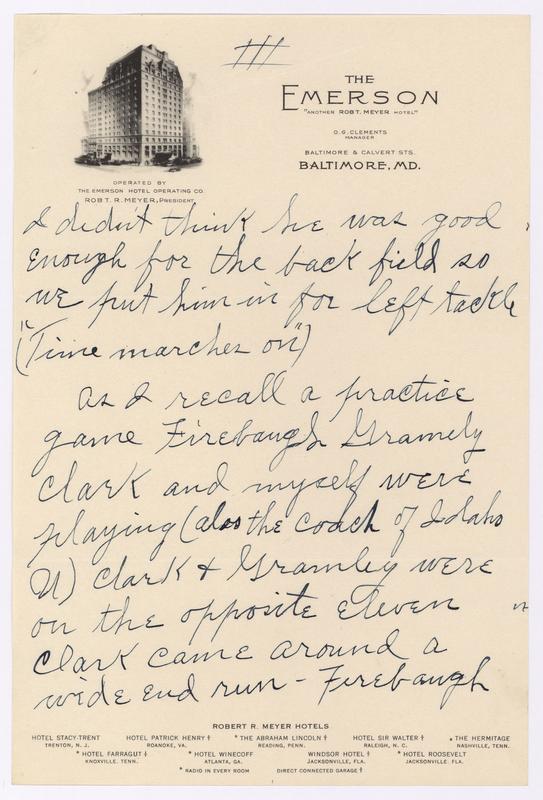 III
THE
EMERSON
"ANOTHER ROBT. MEYER HOTEL"
O. G. CLEMENTS
MANAGER
BALTIMORE & CALVERT STS.
BALTIMORE, MD.
OPERATED BY
THE EMERSON HOTEL OPERATING CO.
ROBT. R. MEYER, PRESIDENT
I didn't think he was good
enough for the back field so
we put him in for left tackle
("Time marches on")
As I recall a practice
game Firebaugh Gramely
Clark and myself were
playing (also the coach of Idaho
U) Clark & Gramley were
on the opposite eleven
Clark came around a
wide end run - Firebaugh
ROBERT R. MEYER HOTELS
HOTEL STACY-TRENT HOTEL PATRICK HENRY ‡ * THE ABRAHAM LINCOLN ‡ HOTEL SIR WALTER ‡ * THE HERMITAGE
TRENTON, N. J. ROANOKE, VA. READING, PENN. RALEIGH, N. C. NASHVILLE, TENN.
* HOTEL FARRAGUT ‡ * HOTEL WINECOFF WINDSOR HOTEL ‡ * HOTEL ROOSEVELT
KNOXVILLE, TENN. ATLANTA, GA. JACKSONVILLE, FLA. JACKSONVILLE, FLA.
* RADIO IN EVERY ROOM DIRECT CONNECTED GARAGE ‡